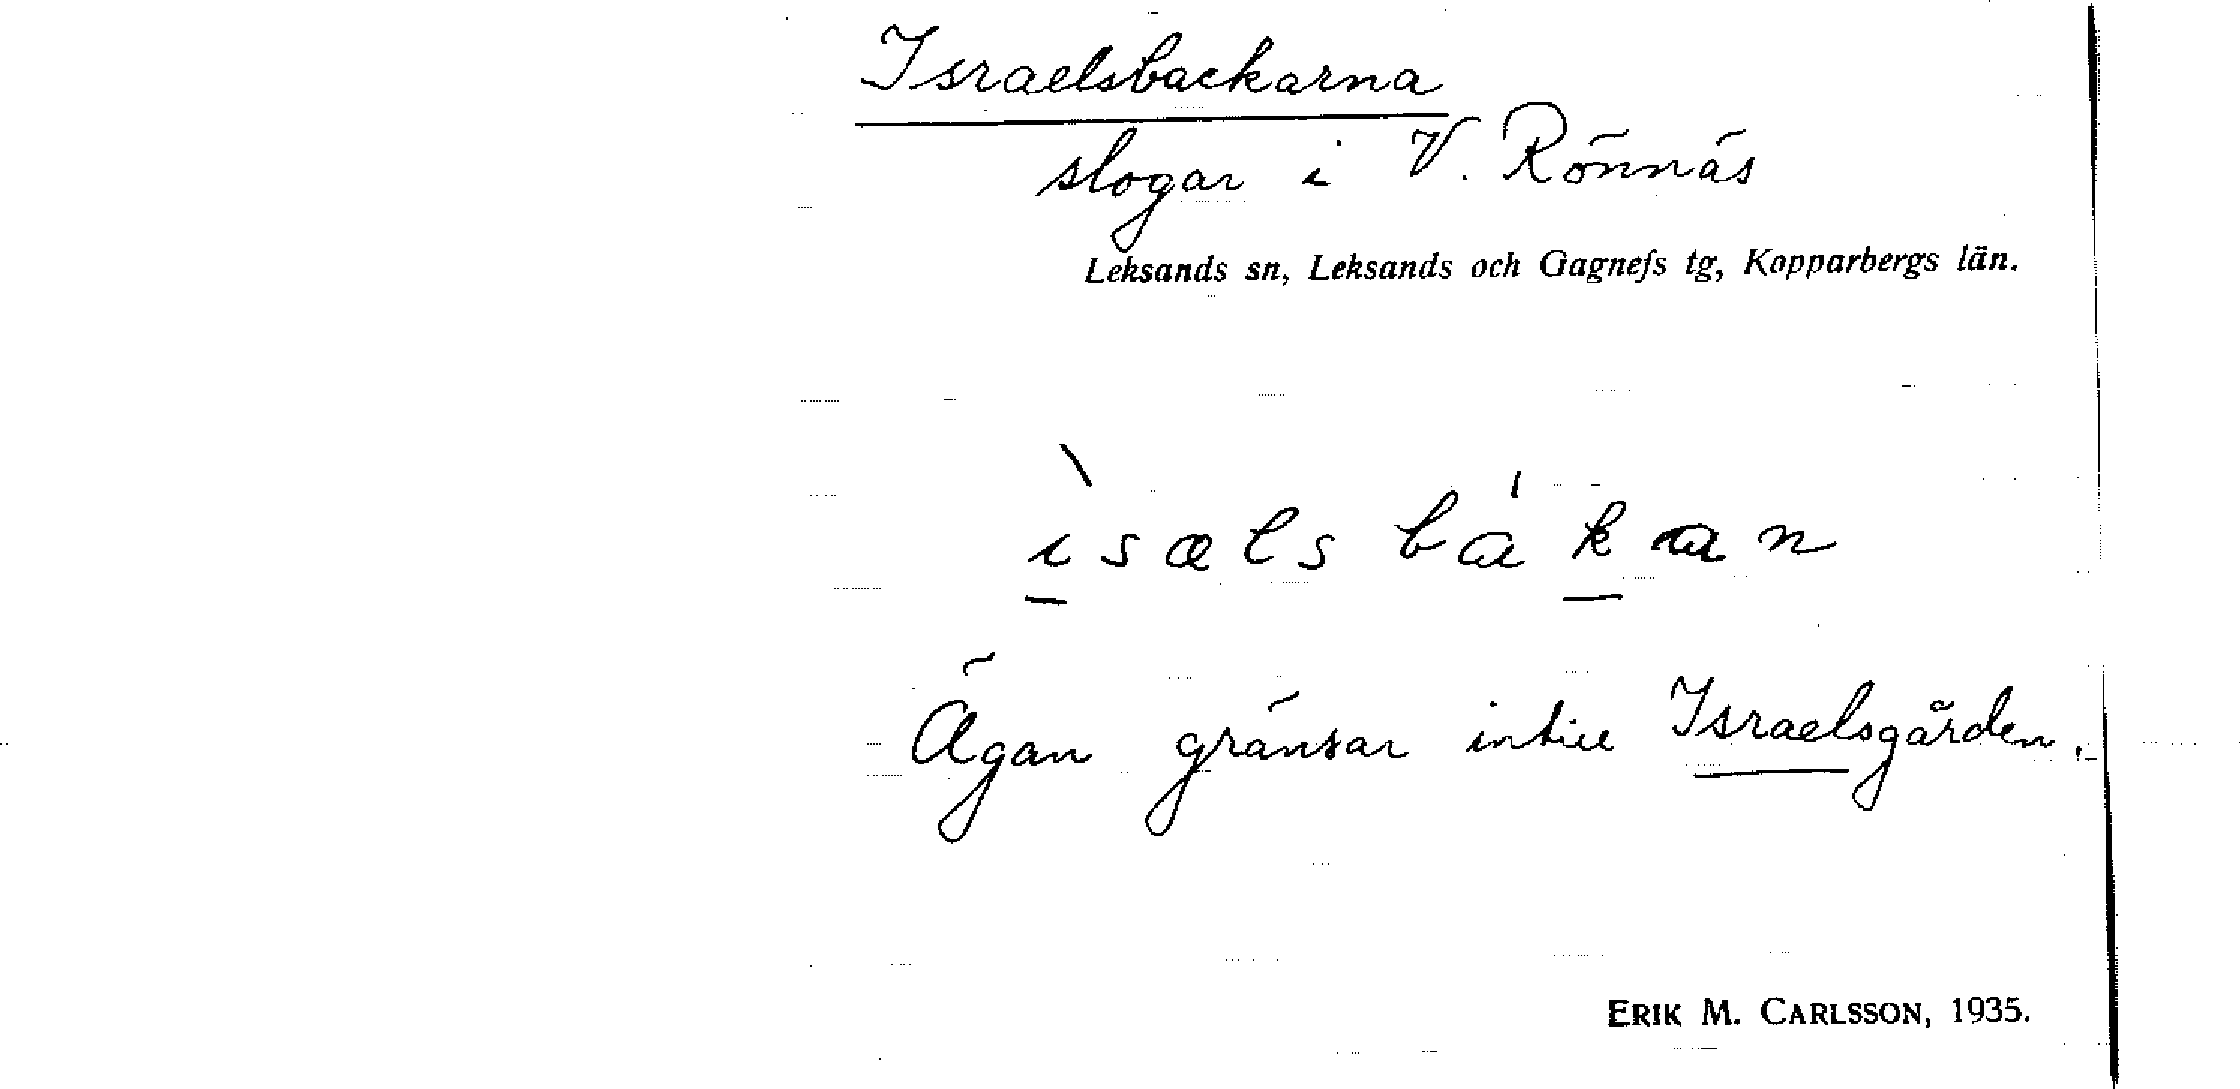 Israelsbackarna
slogar i V. Rönnäs
Leksands sn, Leksands och Gagnefs tg, Kopparbergs län.
ìsælsbákan
Ägan gränsar intill Israelsgården.
ERIK M. CARLSSON, 1935.